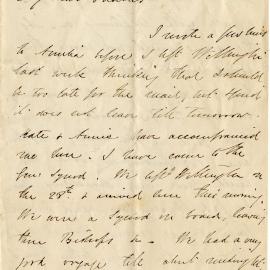 I wrote a few lines
to Amelia before I left Wellington
last week thinking that I should
be too late for the mail, but find
it does not leave till tomorrow.
Kate & Annie have accompanied
me here. I have come to the
Gen Synod. We left Wellington on
the 28th & arrived here this morning.
We were a Synod on board, having
three Bishops &c - We had a very
good voyage till about midnight